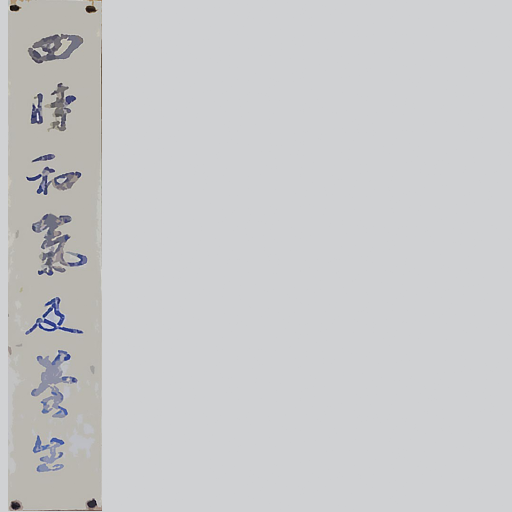 四時和氣及蒼生